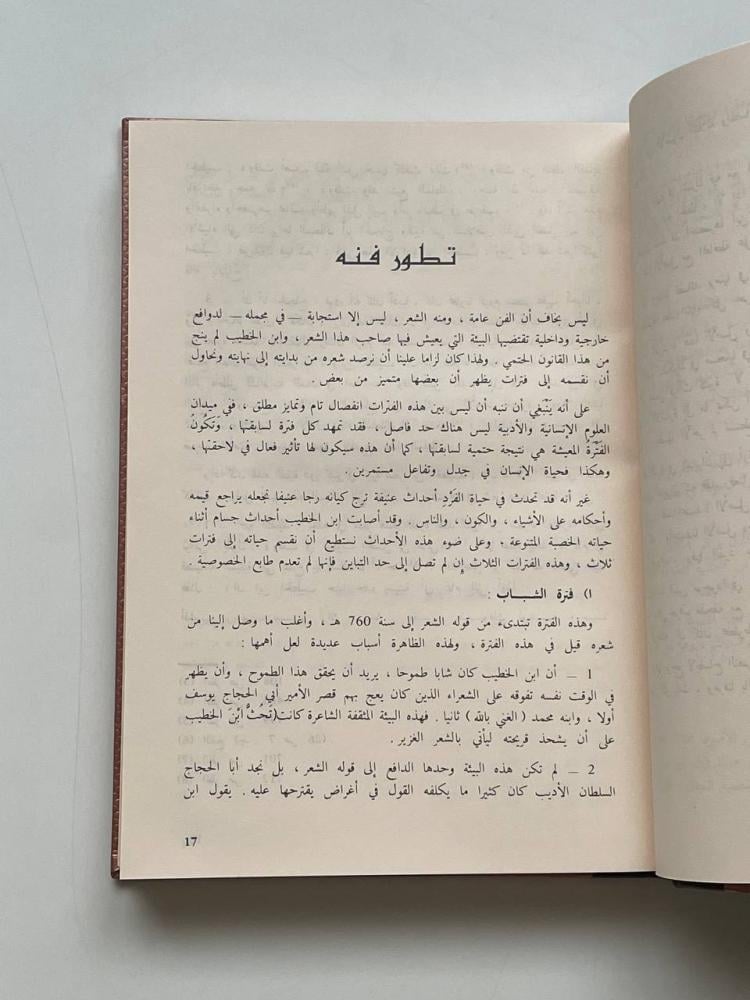 تطور فنه
ليس بخاف أن الفن عامة ، ومنه الشعر ، ليس إلا استجابة ــ في مجمله ــ لدوافع
خارجية وداخلية تقتضيها البيئة التي يعيش فيها صاحب هذا الشعر ، وابن الخطيب لم ينج
من هذا القانون الحتمي . ولهذا كان لزاما علينا أن نرصد شعره من بدايته إلى نهايته ونحاول
أن نقسمه إلى فترات يظهر أن بعضها متميز من بعض .
على أنه يَنْبَغي أن ننبه أن ليس بين هذه الفترات انفصال تام وتمايز مطلق ، ففي ميدان
العلوم الإنسانية والأدبية ليس هناك حد فاصل ، فقد تمهد كل فترة لسابقتها ، وَتَكُونُ
الفَتْرَةُ المعيشة هي نتيجة حتمية لسابقتها ، كما أن هذه سيكون لها تأثير فعال في لاحقتها ،
وهكذا فحياة الإنسان في جدل وتفاعل مستمرين .
غير أنه قد تحدث في حياة الفَرْدِ أحداث عنيفة ترج كيانه رجا عنيفا تجعله يراجع قيمه
وأحكامه على الأشياء ، والكون ، والناس . وقد أصابت ابن الخطيب أحداث جسام أثناء
حياته الخصبة المتنوعة . وعلى ضوء هذه الأحداث نستطيع أن نقسيم حياته إلى فترات
ثلاث ، وهذه الفترات الثلاث إن لم تصل إلى حد التباين فإنها لم تعدم طابع الخصوصية .
ا) فترة الشبــاب :
وهذه الفترة تبتدىء من قوله الشعر إلى سنة 760 هـ ، وأغلب ما وصل إلينا من
شعره قيل في هذه الفترة ، ولهذه الظاهرة أسباب عديدة لعل أهمها :
1 ــ أن ابن الخطيب كان شابا طموحا ، يريد أن يحقق هذا الطموح ، وأن يظهر
في الوقت نفسه تفوقه على الشعراء الذين كان يعج بهم قصر الأمير أبي الحجاج يوسف
أولا ، وابنه محمد ( الغني بالله ) ثانيا . فهذه البيئة المثقفة الشاعرة كانت(تَحُثُّ ابْنَ الخطيب
على أن يشحذ قريحته ليأتي بالشعر الغزير .
2 ــ لم تكن هذه البيئة وحدها الدافع إلى قوله الشعر ، بل نجد أبا الحجاج
السلطان الأديب كان كثيرا ما يكلفه القول في أغراض يقترحها عليه . يقول ابن
17